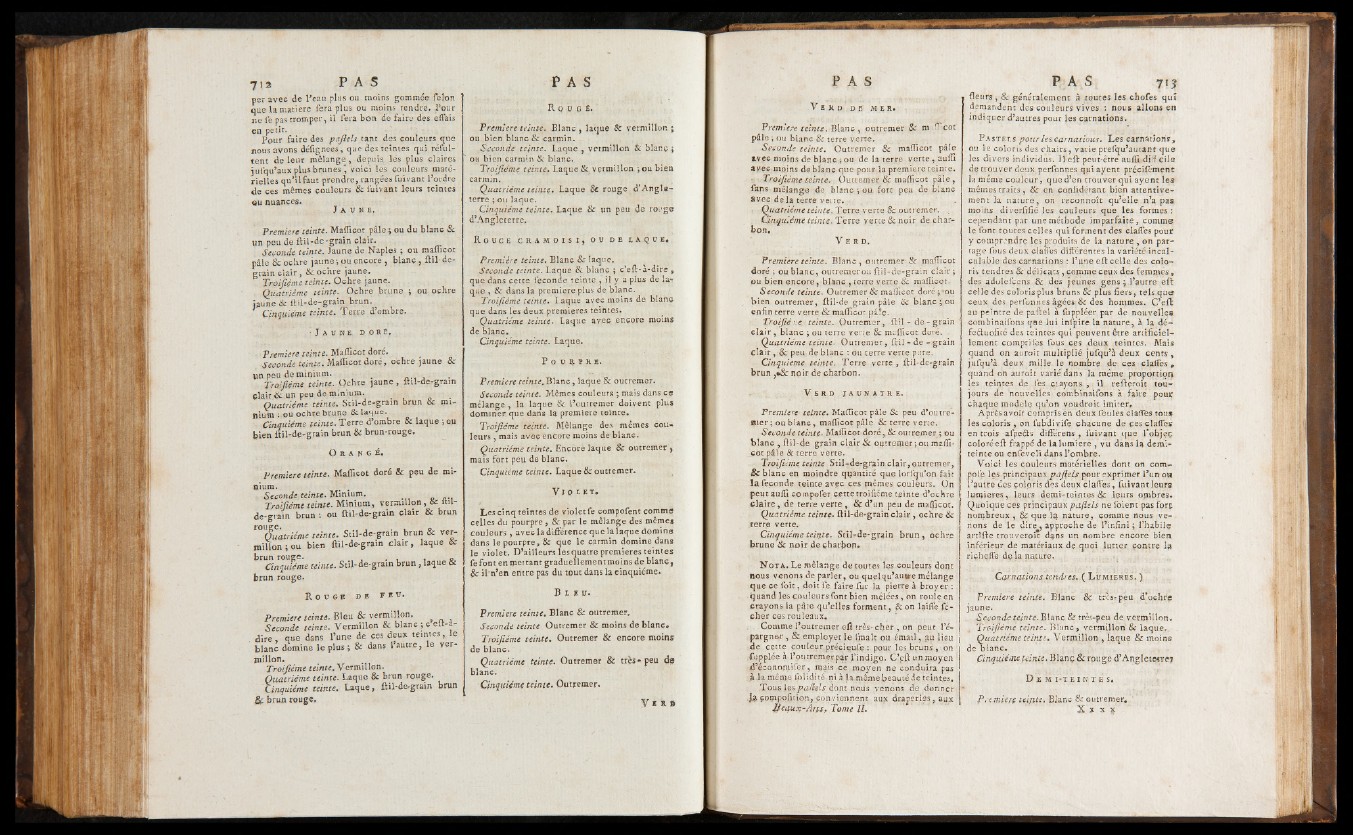 712 PAS
per avec de l'eau plus ou moins gommée selon
que la matiere sera plus ou moins tendre. Pour
ne se pas tromper, il sera bon de faire des essais
en petit.
Pour faire des pastels tant des couleurs que
nous avons désignées, que des teintes qui résul-
tent de leur mêlange, depuis les plus claires
jusqu'aux plus brunes, voici les couleurs maté-
rielles qu'il faut prendre, rangées suivant l'ordre
de ces mêmes couleurs & suivant leurs teintes
ou nuances.
JAUNE.
Premiere teinte. Massicot pâle; ou du blanc &
un peu de stil-de-grain clair.
Seconde teinte. Jaune de Naples; ou massicot
pâle & ochre jaune; ou encore, blanc, stil-de-
grain clair, & ochre jaune.
Troisiéme teinte. Ochre jaune.
Quatriéme teinte. Ochre brune; ou ochre
jaune & stil-de-grain brun.
Cinquieme teinte. Terre d'ombre.
JAUNE DORÉ.
Premiere teinte. Massicot doré.
Seconde teinte. Massicot doré, ochre jaune &
un peu de minium.
Troisiéme teinte. Ochre jaune, stil-de-grain
clair & un peu de minium.
Quatriéme teinte. Stil-de-grain brun & mi-
nium: ou ochre brune & laque.
Cinquiéme teinte. Terre d'ombre & laque; ou
bien stil-de-grain brun & brun-rouge.
ORANGÉ.
Premiere teinte. Massicot doré & peu de mi-
nium.
Seconde teinte. Minium.
Troisiéme teinte. Minium, vermillon, & stil-
de-grain brun: ou stil-de-grain clair & brun
rouge.
Quatriéme teinte. Stil-de-grain brun & ver-
millon; ou bien stil-de-grain clair, laque &
brun rouge.
Cinquiéme teinte. Stil-de-grain brun, laque &
brun rouge.
ROUGE DE FEU.
Premiere teinte. Bleu & vermillon.
Seconde teinte. Vermillon & blanc; c'est-à-
dire, que dans l'une de ces deux teintes, le
blanc domine le plus; & dans l'autre, le ver-
millon.
Troisiéme teinte. Vermillon.
Quatriéme teinte. Laque & brun rouge.
Cinquiéme teinte. Laque, stil-de-grain brun
& brun rouge.
PAS
ROUGE.
Premiere teinte. Blanc, laque & vermillon;
ou bien blanc & carmin.
Seconde teinte. Laque, vermillon & blanc;
ou bien carmin & blanc.
Troisiéme teinte. Laque & vermillon; ou bien
carmin.
Quatriéme teinte. Laque & rouge d'Angle-
terre; ou laque.
Cinquiéme teinte. Laque & un peu de rouge
d'Angleterre.
ROUGE CRAMOISI, OU DE LAQUE.
Premiére teinte. Blanc & laque.
Seconde teinte. Laque & blanc; c'est-à-dire,
que dans cette seconde teinte, il y a plus de la-
que, & dans la premiere plus de blanc.
Troisiéme teinte. Laque avec moins de blanc
que dans les deux premieres teintes.
Quatriéme teinte. Laque avec encore moins
de blanc.
Cinquiéme teinte. Laque.
POURPRE.
Premiere teinte. Blanc, laque & outremer.
Seconde teinte. Mêmes couleurs; mais dans ce
mêlange, la laque & l'outremer doivent plus
dominer que dans la premiere teinte.
Troisiéme teinte. Mêlange des mêmes cou-
leurs, mais avec encore moins de blanc.
Quatriéme teinte. Encore laque & outremer,
mais fort peu de blanc.
Cinquiéme teinte. Laque & outremer.
VIOLET.
Les cinq teintes de violet se composent comme
celles du pourpre, & par le mêlange des mêmes
couleurs, avec la différence que la laque domine
dans le pourpre, & que le carmin domine dans
le violet. D'ailleurs les quatre premieres teintes
se font en mettant graduellement moins de blanc,
& il n'en entre pas du tout dans la cinquiéme.
BLEU.
Premiere teinte. Blanc & outremer.
Seconde teinte Outremer & moins de blanc.
Troisiéme teinte. Outremer & encore moins
de blanc.
Quatriéme teinte. Outremer & très-peu de
blanc.
Cinquiéme teinte. Outremer.
VERD
PAS
VERD DE MER.
Premiere teinte. Blanc, outremer & massicot
pâle; ou blanc & terre verte.
Seconde teinte. Outremer & massicot pâle
avec moins de blanc; ou de la terre verte, aussi
avec moins de blanc que pour la premiere teinte.
Troisiéme teinte. Outremer & massicot pâle,
sans mêlange de blanc; ou fort peu de blanc
avec de la terre verte.
Quatriéme teinte. Terre verte & outremer.
Cinquiéme teinte. Terre verte & noir de char-
bon.
VERD.
Premiere teinte. Blanc, outremer & massicot
doré: ou blanc, outremer ou stil-de-grain clair;
ou bien encore, blanc, terre verte & massicot.
Seconde teinte. Outremer & massicot doré; ou
bien outremer, stil-de grain pâle & blanc; ou
enfin terre verte & massicot pâle.
Troisiéme teinte. Outremer, stil-de-grain
clair, blanc; ou terre verte & massicot doré.
Quatriéme teinte. Outremer, stil-de-grain
clair, & peu de blanc: ou terre verte pure.
Cinquieme teinte. Terre verte, stil-de-grain
brun, & noir de charbon.
VERD JAUNATRE.
Premiere teinte. Massicot pâle & peu d'outre-
mer; ou blanc, massicot pâle & terre verte.
Seconde teinte. Massicot doré, & outremer; ou
blanc, stil-de grain clair & outremer; ou massi-
cot pâle & terre verte.
Troisiéme teinte Stil-de-grain clair, outremer,
& blanc en moindre quantité que lorsqu'on fait
la seconde teinte avec ces mêmes couleurs. On
peut aussi composer cette troisiéme teinte d'ochre
claire, de terre verte, & d'un peu de massicot.
Quatriéme teinte. stil-de-grain clair, ochre &
terre verte.
Cinquiéme teinte. Stil-de-grain brun, ochre
brune & noir de charbon.
NOTA. Le mêlange de toutes les couleurs dont
nous venons de parler, ou quelqu'autre mêlange
que ce soit, doit se faire sur la pierre à broyer:
quand les couleurs sont bien mêlées, on roule en
crayons la pâte qu'elles forment, & on laisse sé-
cher ces rouleaux.
Comme l'outremer est très-cher, on peut l'é-
pargner, & employer le smalt ou émail, au lieu
de cette couleur précieuse: pour les bruns, on
supplée à l'outremer par l'indigo. C'est un moyen
d'économiser, mais ce moyen ne conduira pas
à la même solidité ni à la même beauté de teintes.
Tous les pastels dont nous venons de donner
la composition, conviennent aux draperies, aux
Beaux-Arts, Tome II.
PAS 713
fleurs, & généralement à toutes les choses qui
demandent des couleurs vives: nous allons en
indiquer d'autres pour les carnations.
PASTELS pour les carnations. Les carnations,
ou le coloris des chairs, varie presqu'autant que
les divers individus. Il est peut-être aussi difficile
de trouver deux personnes qui ayent précisément
la même couleur, que d'en trouver qui ayent les
mêmes traits, & en considérant bien attentive-
ment la nature, on reconnoît qu'elle n'a pas
moins diversifié les couleurs que les formes:
cependant par une méthode imparfaite, comme
le sont toutes celles qui forment des classes pour
y comprendre les produits de la nature, on par-
tage sous deux classes différentes la variété incal-
culable des carnations: l'une est celle des colo-
ris tendres & délicats, comme ceux des femmes,
des adolescens & des jeunes gens; l'autre est
celle des coloris plus bruns & plus fiers, tels que
ceux des personnes âgées & des hommes. C'est
au peintre de pastel à suppléer par de nouvelles
combinaisons que lui inspire la nature, à la dé-
fectuosité des teintes qui peuvent être artificiel-
lement comprises sous ces deux teintes. Mais
quand on auroit multiplié jusqu'à deux cents,
jusqu'à deux mille le nombre de ces classes,
quand on auroit varié dans la même proportion
les teintes de ses crayons, il resteroit tou-
jours de nouvelles combinaisons à faire pour
chaque modele qu'on voudroit imiter.
Après avoir compris en deux seules classes tous
les coloris, on subdivise chacune de ces classes
en trois aspects différens, suivant que l'objet
coloré est frappé de la lumiere, vu dans la demi-
teinte ou enseveli dans l'ombre.
Voici les couleurs matérielles dont on com-
pose les principaux pastels pour exprimer l'un ou
l'autre des coloris des deux classes, suivant leurs
lumieres, leurs demi-teintes & leurs ombres.
Quoique ces principaux pastels ne soient pas fort
nombreux, & que la nature, comme nous ve-
nons de le dire, approche de l'infini; l'habile
artiste trouveroit dans un nombre encore bien
inférieur de matériaux de quoi lutter contre la
richesse de la nature.
Carnations tendres. (LUMIERES.)
Premiere teinte. Blanc & très-peu d'ochre
jaune.
Seconde teinte. Blanc & très-peu de vermillon.
Troisiéme teinte. Blanc, vermillon & laque.
Quatriéme teinte. Vermillon, laque & moins
de blanc.
Cinquiéme teinte. Blanc & rouge d'Angleterre;
DEMI-TEINTES.
Premiere teinte. Blanc & outremer.
X x x x